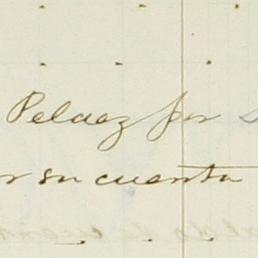 Pelaez por
or su cuenta